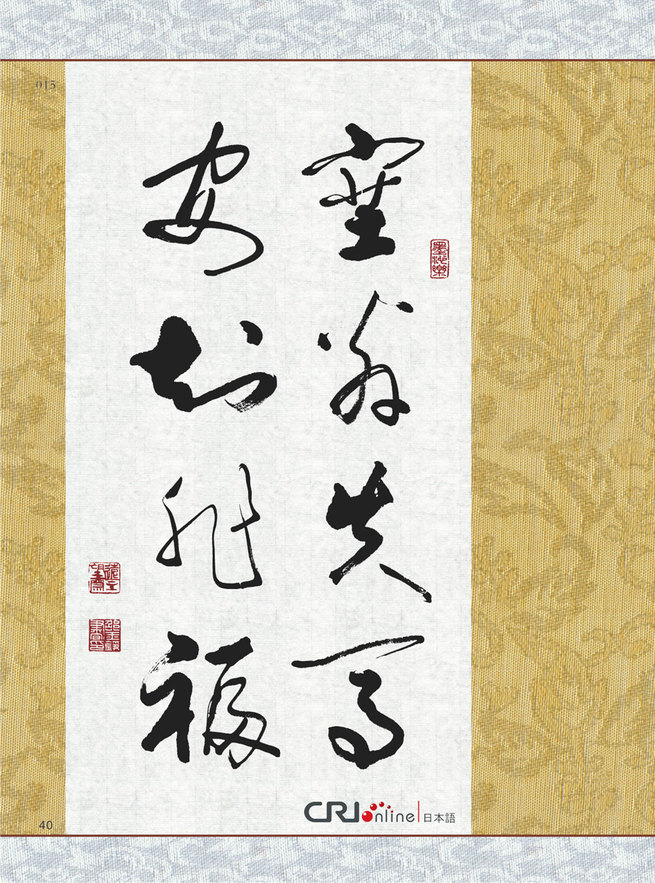 015
塞翁失馬
安知非福
墨池樂
40
CRI online 日本語